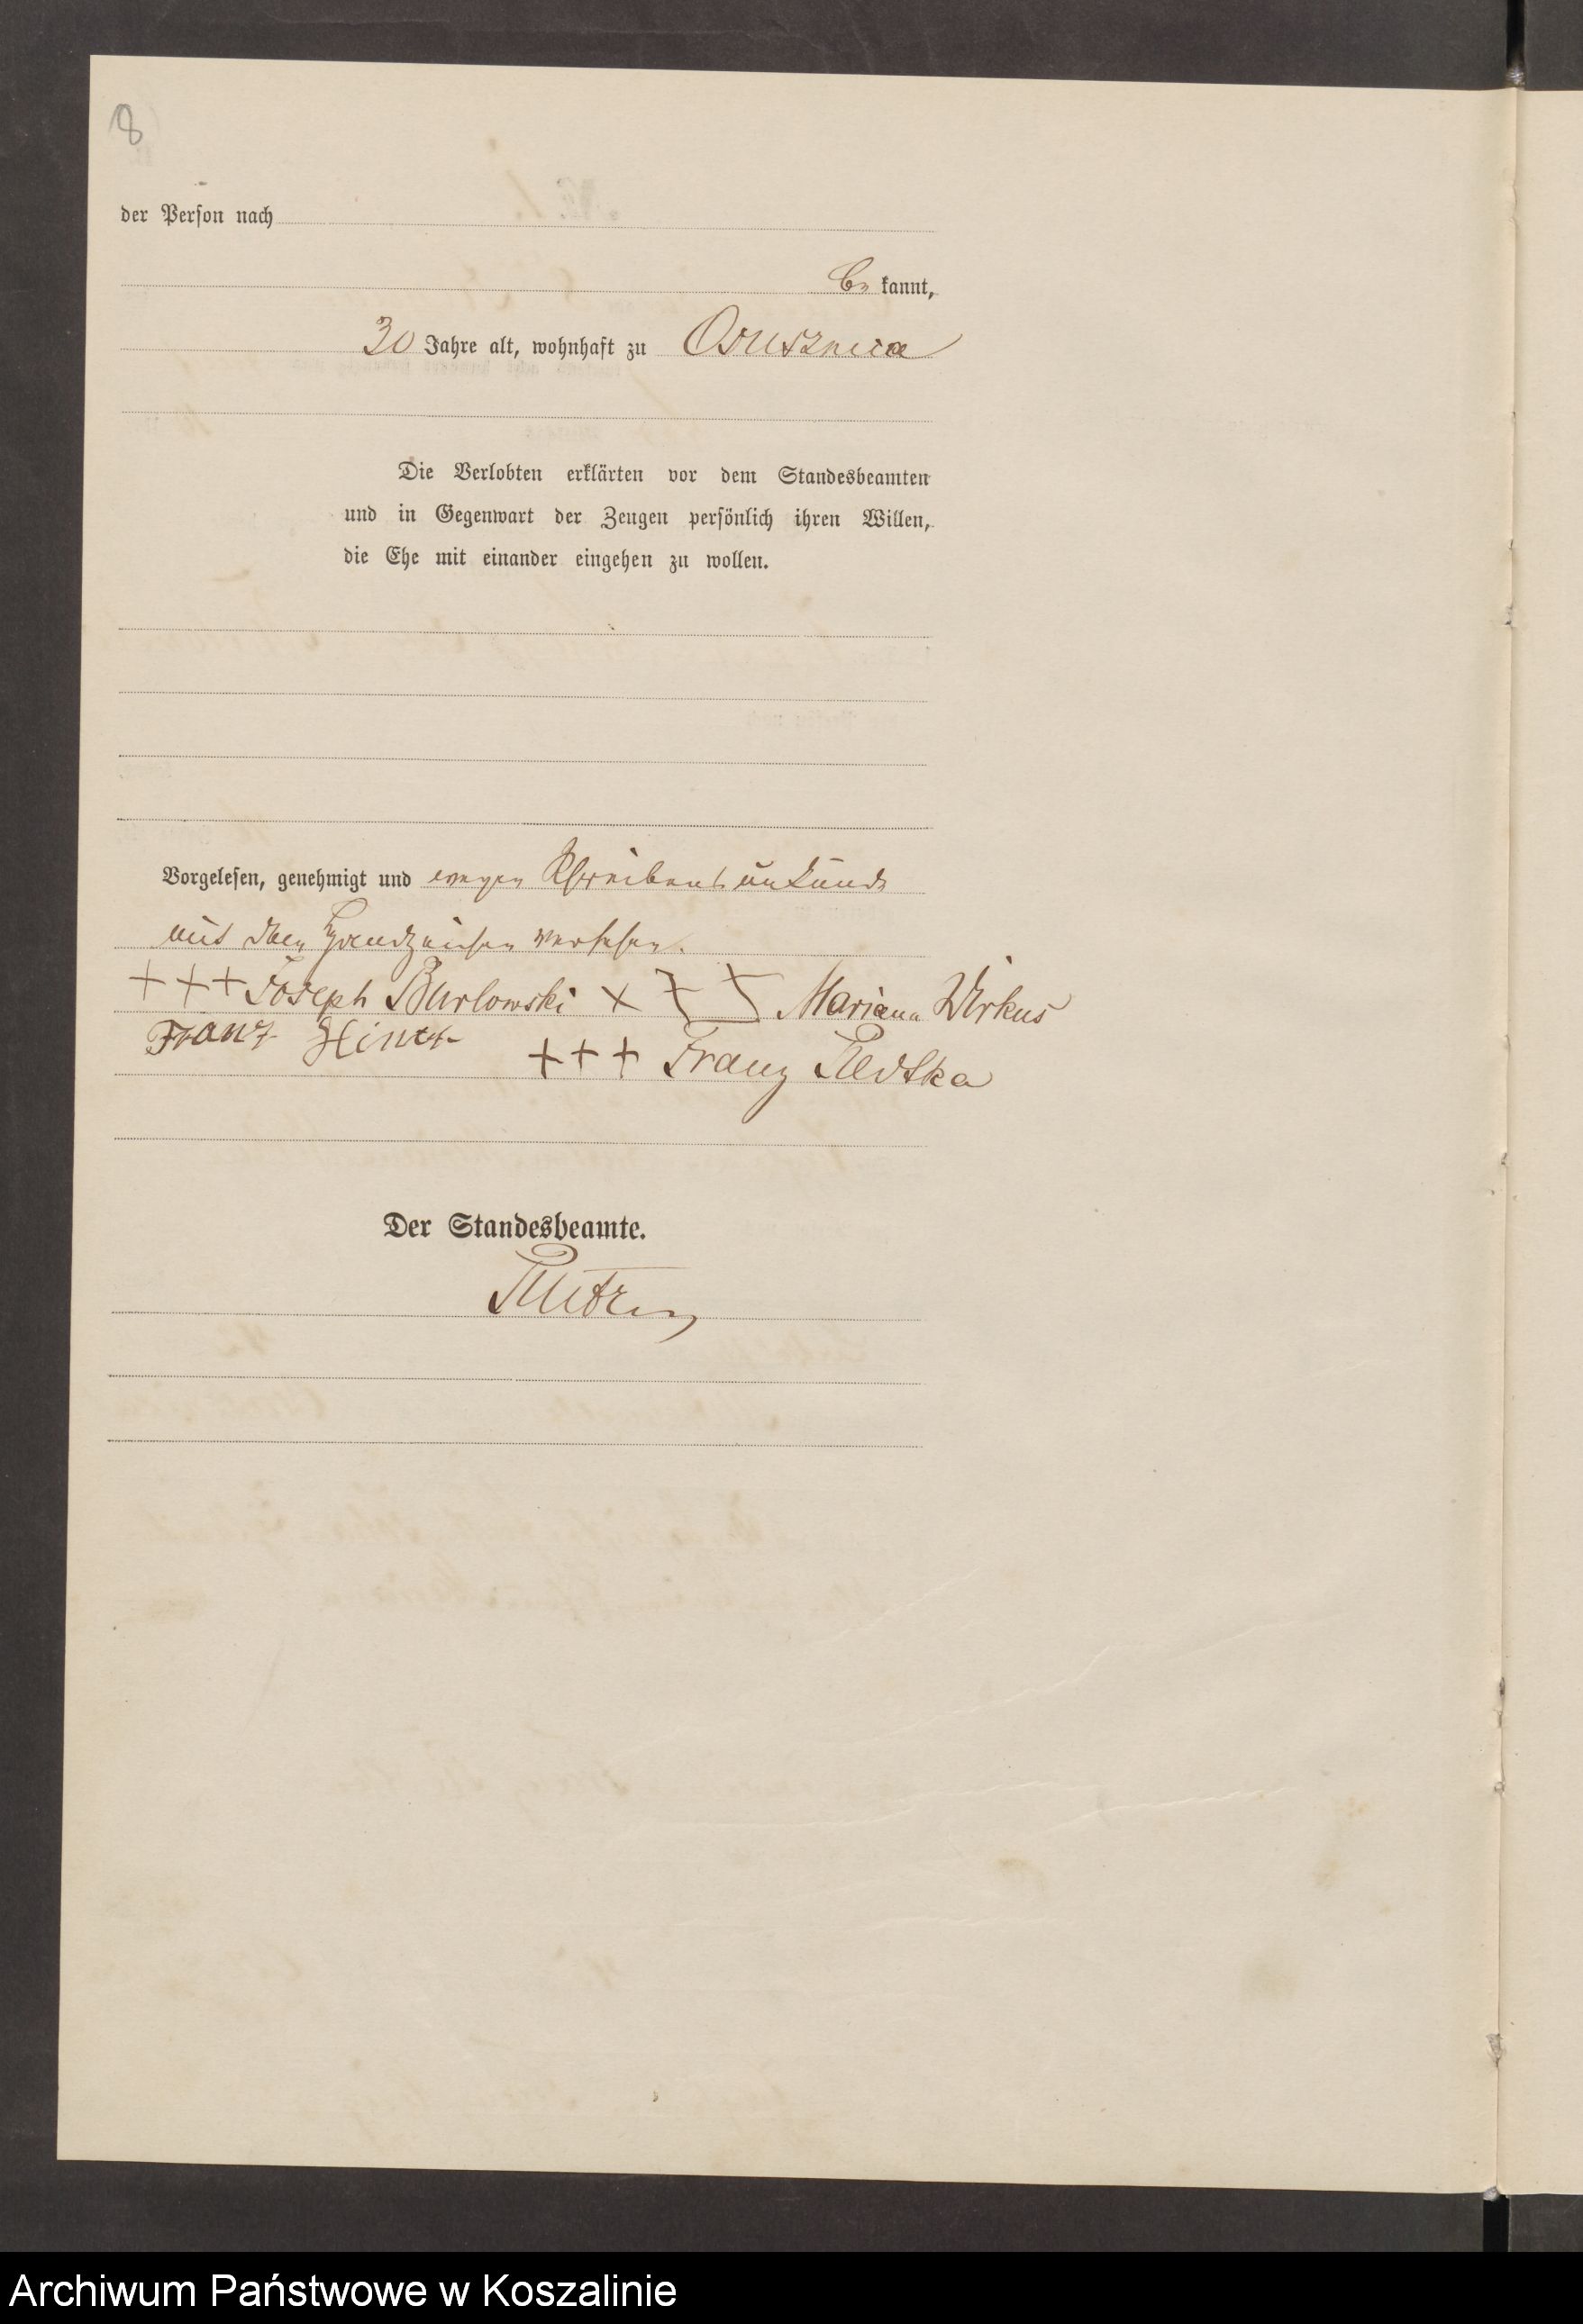 8
der Person nach
be kannt,
30 Jahre alt, wohnhaft zu Osusznica
Die Verlobten erklärten vor dem Standesbeamten
und in Gegenwart der Zeugen persönlich ihren Willen,
die Ehe mit einander eingehen zu wollen.
Vorgelesen, genehmigt und wegen Schreibensunkunde
mit den Handzeichen versehen.
+++ Joseph Burlowski +++ Marianna Wirkus
Franz Hintz
+++ Franz
Der Standesbeamte.
Archiwum Państwowe w Koszalinie